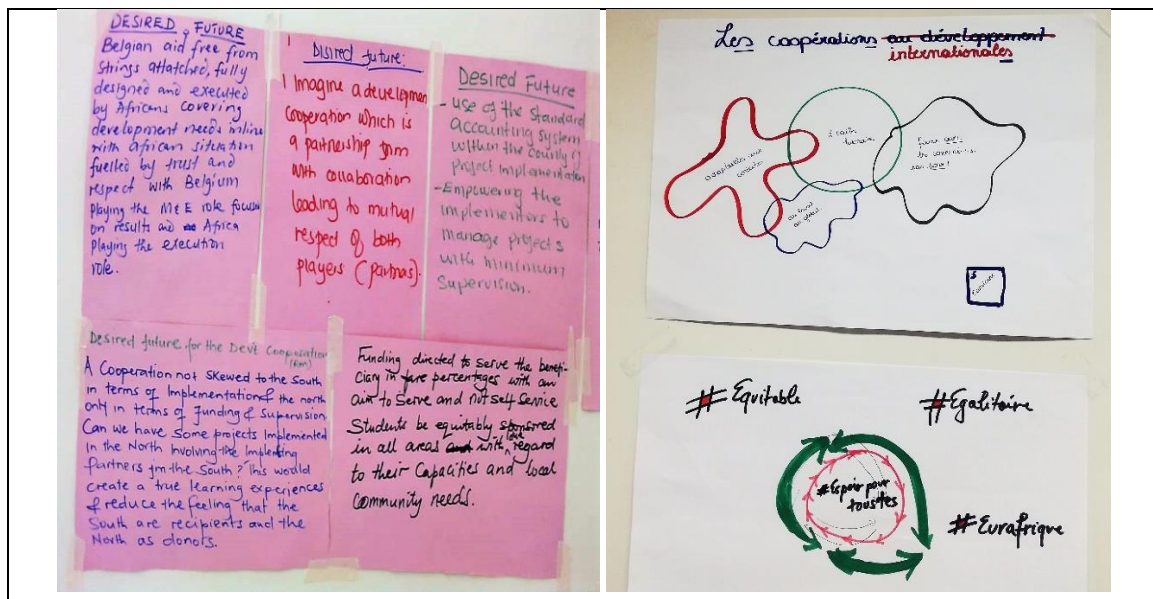 DESIRED FUTURE
Belgian aid free from
strings attatched, fully
designed and executed
by Africans covering
development needs inline
with African situation
fuelled by trust and
respect with Belgium
playing the M&E role focus
on results and Africa
playing the execution
role.
Disired future:
I Imagine a developmen
cooperation which is
a partnership
with collaboration
leading to mutual
respect of both
players (partners).
Desired Future
- use of the standard
accounting system
within the county of
project implementation
- Empowering the
implementors to
manage projects
with minimum
Supervision.
Desired future for the Devt Cooperation
A Cooperation not skewed to the South
in terms of Implementation & the north
only in terms of funding & Supervision
Can we have some projects Implemented
in the North Involving the Implementing
Partners from the South? This would
create a true learning experiences
& reduce the feeling that the
South are recipients and the
North as donors.
Funding directed to serve the benefi-
ciary in fare percentages with an
aim to Serve and not self service
Students be equitably sponsored
in all areas with regard
to their Capacities and local
Community needs.
Les coopérations au développement
internationales
#Equitable
#Egalitaire
#Espoir pour
toustes
#Eurafrique